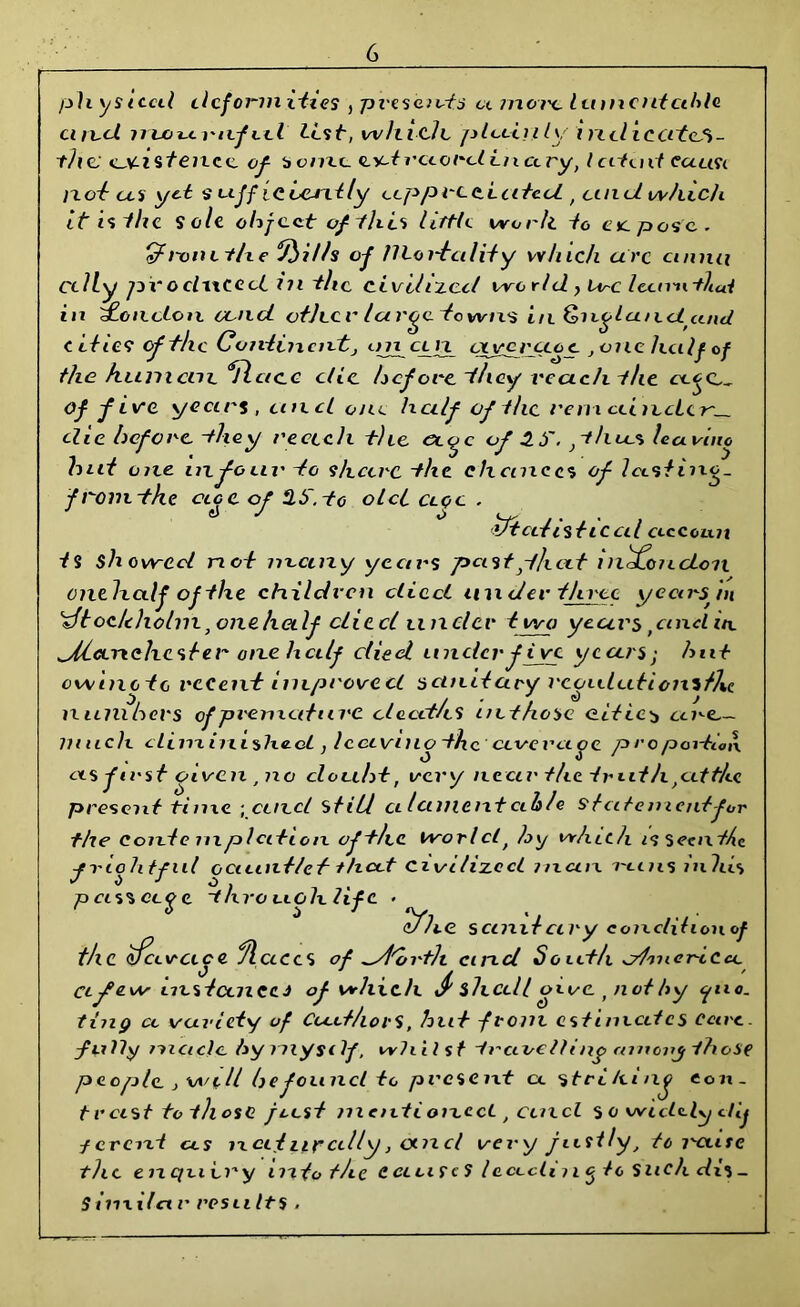 6
physical deformities, presents a more lamentable
and mournful list, which plainly indicates-
the existence of some extraordinary, latent cause
not as yet sufficiently appreciated, and which
it is the sole object of this little work to expose.
From the Bills of Mortality which are annu
ally produced in the civilized world, we learn that
in London and other large towns in England, and
cities of the Continent, on an average, one half of
the human Race die before they reach the age
of five years, and one half of the remainder
die before they reach the age of 25, thus leaving
but one in four to share the chances of lasting-
from the age of 25, to old age.
Statistical accoun
ts showed not many years past, that in London
one half of the children died under three years, in
Stockholm, one half died under two years, and in
Manchester one half died under five years; but
owing to recent improved sanitary regulations the
numbers of premature deaths in those cities are
much diminished, leaving the average proportion
as first given, no doubt, very near the truth, at the
present time; and still a lamentable statement for
the contemplation of the world, by which is seen the
frightful gauntlet that civilized man runs in his
passage through life.
The sanitary condition of
the Savage Races of North and South America
a few instances of which I shall give, not by quo-
ting a variety of Authors, but from estimates care-
fully made by myself, whilst travelling among those
people, will be found to present a striking con-
trast to those just mentioned, and so widely dif
ferent as naturally, and very justly, to raise
the enquiry into the causes leading to such dis-
similar results.